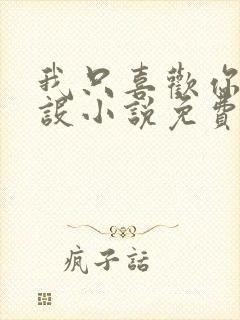 我只喜歡你
設小說免費
疯子話